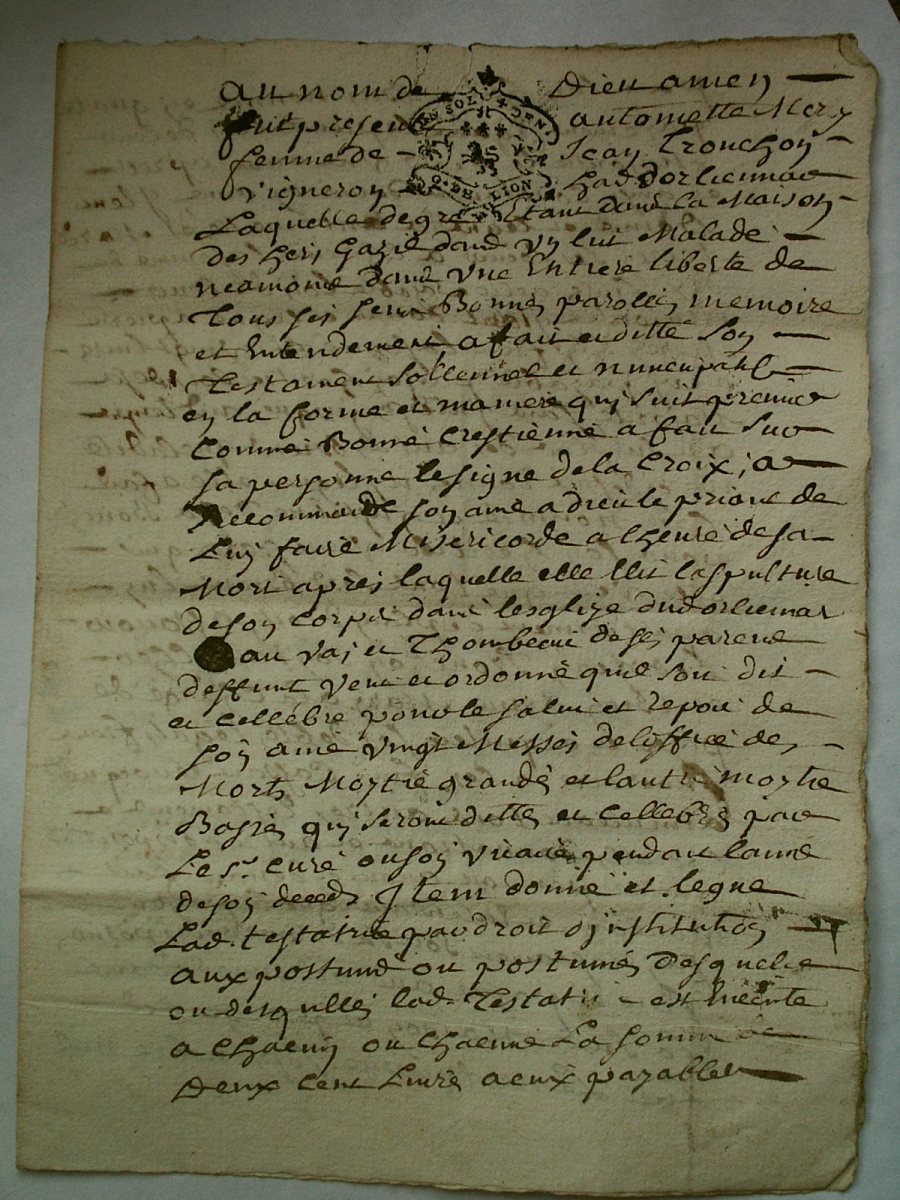 au nom de Dieu amen
fut presente antoinette Mery
femme de Jean Tronchon
vigneron hab. Dorliennas
Laquelle de gre Estant dans la Maison
des hers dans un lict Malade
neamoins dans une Entiere liberte de
Tous ses sens Bonne parolle, memoire
et Entendement a fait et ditte son
Testament sollennel et nuncupatif
en la forme et maniere qui suit premier
Comme Bonne Crestienne a fait sur
sa personne le signe de la Croix; a
Recommande son ame a dieu le priant de
Luy faire Misericorde a lheure de sa
Mort apres laquelle elle Elit la spulture
de son Corps dans lesglize dud orliennas
au et Thombeau de ses parens
deffunt veut et ordonne que soit dit
et Cellebre pour le salut et repos de
son ame vingt Messes de loffice des
Morts Moytie grandes et lautre moytie
Basses qui seront dittes et Cellebres par
Le sr. Cure ou son vicaire pendant lanne
de son deceds Jtem donne et legue
Lad. testatrice par droit dinstitution
aux postume ou postumes desquels
ou desquelles lad. Testatrice est Enceinte
a Chacun ou Chacune La somme de
Deux Cent Livres a eux payables